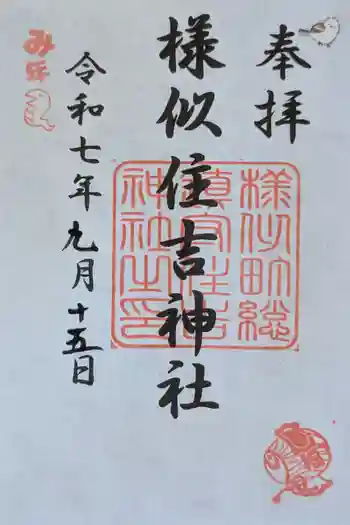 奉拝
様似住吉神社
令和七年九月十五日
様似町総
鎮守住吉
神社之印